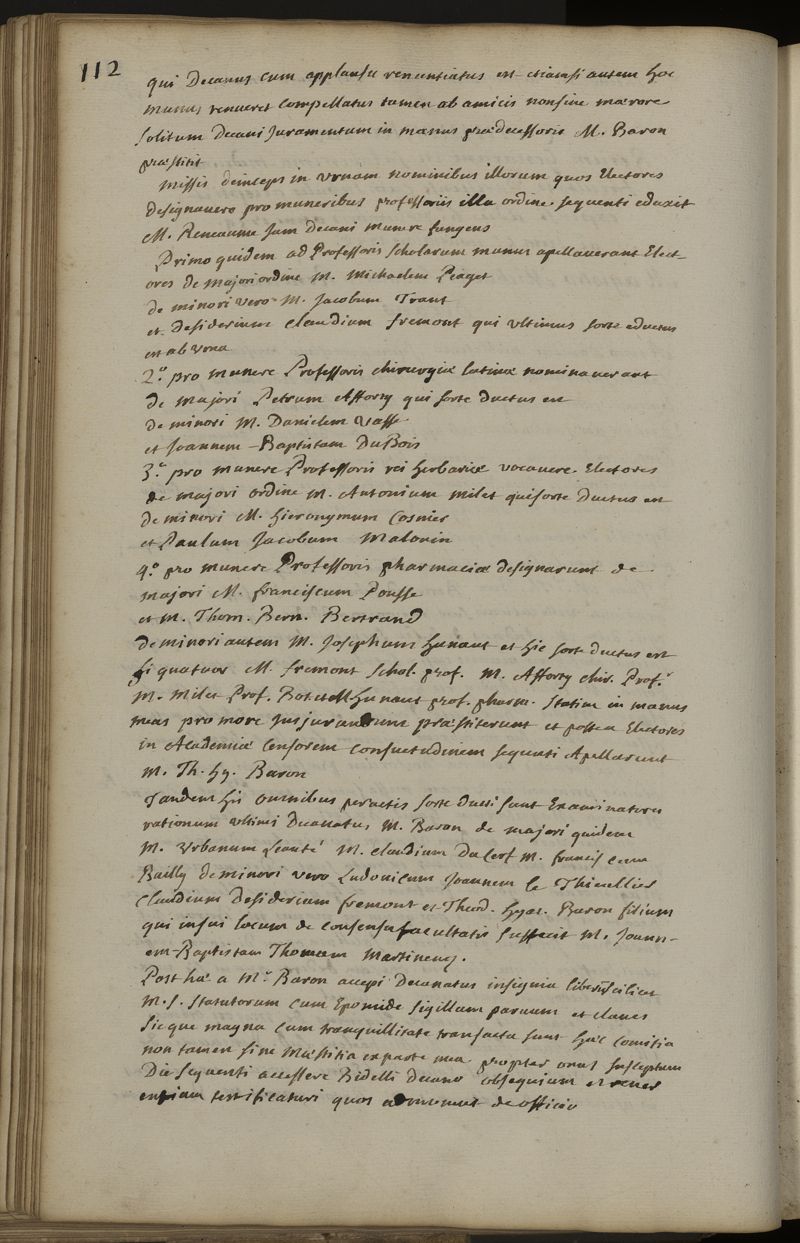 112
qui Decanus cum applausu renuntiatus est etiamsi autem hoc
munus renueret compellatus tamen ab amicis non sine mærore
solitum Decani Juramentum in manus prædecessoris M. Baron
præstitit
Missis deinceps in urnam nominibus illorum quos Electores
designavere pro muneribus professoriis illa ordine sequenti eduxit
M. Reneaume Jam Decani munere fungens
Primo quidem ad Professoris scholarum munus apellaverant Elect-
ores de majori ordine M. Michaelem Peaget
de minori vero M. Jacobum Trant
et Desiderium Claudium fremont qui ultimus sorte eductus
est ab urna
2.° pro munere Professoris chirurgiæ latinæ nominaverant
de majori Petrum Afforty qui sorte ductus est
de minori M. Danielem Vasse
et Joannem-Baptistam DuBois
3.° pro munere Professoris rei herbariæ vocavere Electores
de majori ordine M. Antonium milet qui sorte ductus est
de minori M. hieronymum Cosnier
et Paulum Jacobum Malouin
4.° pro munere Professoris pharmaciæ designarunt de
majori M. franciscum Pousse
et M. Thom. Bern. Bertrand
de minori autem M. Josephum hunaut et hic sorte ductus est
hi quatuor M. fremont schol. prof. M. Afforty chir. Prof.r
M. Milet Prof. Bot. et M. hunaut prof. pharm. statim in manus
meas pro more jusjurandum præstiterunt et postea Electores
in Academiæ Censorem consuetudinem sequuti Apellarunt
M. Th. hy. Baron
Tandem his omnibus peractis sorte ducti sunt Examinatores
rationum ultimi Decanatus M. Baron de majori quidem
M. Urbanum Leauté M. claudium Du Cerf M. franciscum
Bailly de minori vero Ludovicum Joannem le Thieullier
Claudium Desiderium fremont et Theod. hyac. Baron filium
qui in sui locum de consensu facultatis suffecit M. Joann-
em-Baptistam Thomam Martinenq.
Post hæc a M.r Baron accepi Decanatus insignia libros scilicet
M.S. statutorum cum Epomide sigillum parvum et claves
sicque magna cum tranquillitate transacta sunt hæc comitia
non tamen sine mæstitia ex parte mea propter onus susceptum
Die sequenti accessere Bidelli Decano obsequium et rever
entiam testificaturi quos admonuit de officio